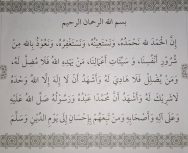 بسم الله الرحمان الرحيم
إِنَّ الْحَمْدَ لله نَحْمَدُهُ، وَنَسْتَعِينُهُ، وَنَسْتَغْفِرُهُ، وَنَعُوذُ بِالله مِنْ
شُرُورِ أَنْفُسِنَا، وَ سَيِّئَاتِ أَعْمَالِنَا، مَنْ يَهْدِهِ الله فَلَا مُضِلَّ لَهُ،
وَمَنْ يُضْلِلْ فَلَا هَادِيَ لَهُ وَأَشْهَدُ أَنْ لَا إِلَهَ إِلَّا الله وَحْدَهُ
لَا شَرِيكَ لَهُ وَأَشْهَدُ أَنَّ مُحَمَّدًا عَبْدُهُ وَرَسُولُهُ صَلَّى الله عَلَيْهِ
وَعَلَى آلِهِ وَأَصْحَابِهِ وَمَنْ تَبِعَهُمْ بِإِحْسَانٍ إِلَى يَوْمِ الدِّينِ وَسَلَّمَ